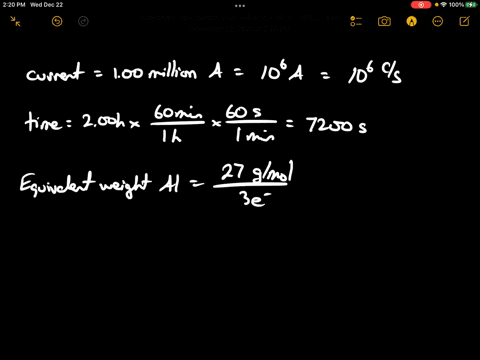 2:20 PM Wed Dec 22
100%
current = 1.00 million A = 10⁶ A = 10⁶ C/s
time = 2.00h × 60 min / 1 h × 60 s / 1 min = 7200 s
Equivalent weight Al = 27 g/mol / 3e⁻